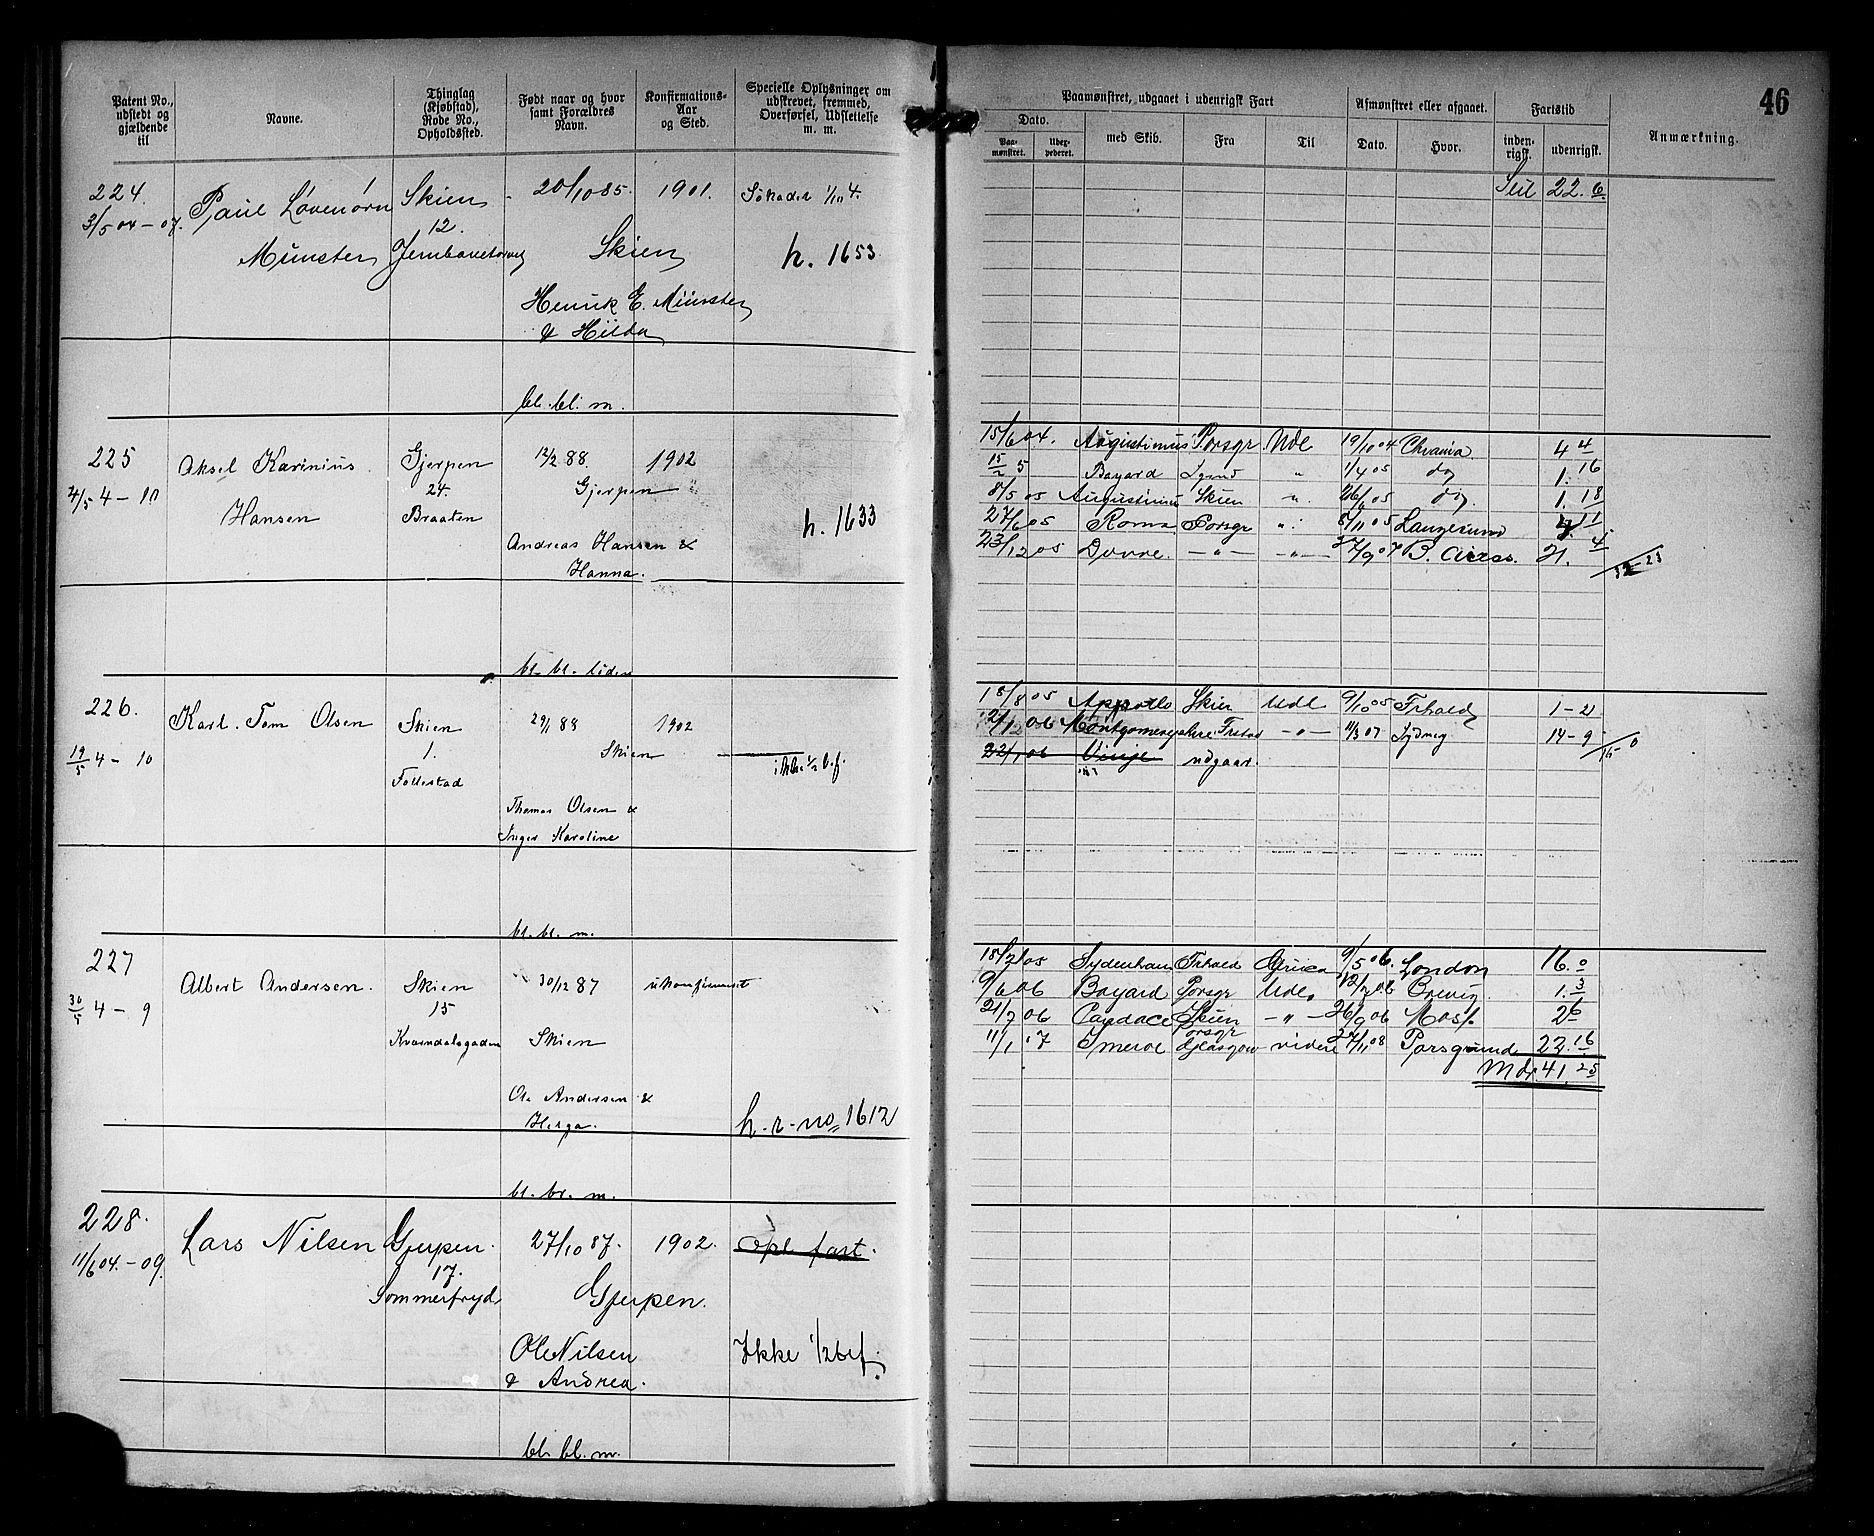 46
Patent No., udstedt og gjældende til
Navne.
Thinglag (Kjøbstad), Rode No., Opholdssted.
Født naar og hvor samt Forældres Navn.
Konfirmations-Aar og Sted.
Specielle Oplysninger om udskrevet, fremmed, Overførsel, Udslettelse m. m.
Paamønstret, udgaaet i udenrigsk Fart
Afmønstret eller afgaaet.
Fartstid
Anmærkning.
Dato.
Paa-mønstret.
med Skib.
Fra
Til
Dato.
Hvor.
inden-rigsk.
udenrigsk.
224. Paul Løvenørn Skien 20/10 85. 1901. Søkadet 1/10 4.
3/5 04-07. 12.
Münster Jernbanetorvet Skien h. 1653
Henrik E. Münster
& Hilda
bl. bl. m.
Seil 22. 6.
225 Aksel Karinius Gjerpen 12/2 88. 1902
4/5 4-10 24. Gjerpen "
Hansen Braaten h. 1633
Andreas Hansen &
Hanna.
bl. bl. liden
15/6 04. Augustinus Porsgr Udl 19/10 04 Chrania 4 4
15/2 5 Bayard " 1/4 05 do 1. 16
8/5 05 Augustinus Skien " 26/6 05 do. 1. 18
27/6 05 Roma Porsgr " 8/11 05 Langesund 4. 11
23/12 05 Dovre. -"- -"- 27/9 07 B. Aires. 21. 4
32-23
226. Karl. Tom Olsen Skien 29/1 88 1902
19/5 4-10 1. Skien ikke 1/2 bf.
Follestad
Thomas Olsen &
Inger Karoline
bl. bl. m.
18/8 05 Appollo Skien Udl 9/10 05 Frhald 1-21
12/1 06 Montgomeryshire Frstad -"- 11/3 07 Sydney 14-9
15-0
22/1 06 Vinje udgaar.
227 Albert Andersen. Skien 30/12 87 ukonfirmeret
30/5 4-9 15
Kverndalsgaden Skien
Ole Andersen &
Helga. h. r. no 1612
bl. bl. m.
18/2 05 Sydenham Frhald Africa 9/5 06. London 16. 0
9/6 06 Bayard Porsgr Udl. 12/7 06 Brevig. 1. 3
21/7 06 Candace Skien -"- 26/9 06 Moss. 2 6
11/1 07 Porsgr Glasgow videre 27/11 08 Porsgrund 22. 16
Mdr. 41. 25
228. Lars Nilsen Gjerpen. 27/10 87. 1902. Opl fast.
11/6 04.-09. 17.
Sommerfryd Gjerpen.
Ole Nilsen Ikke 1/2 bf.
& Andrea.
bl. bl. m.